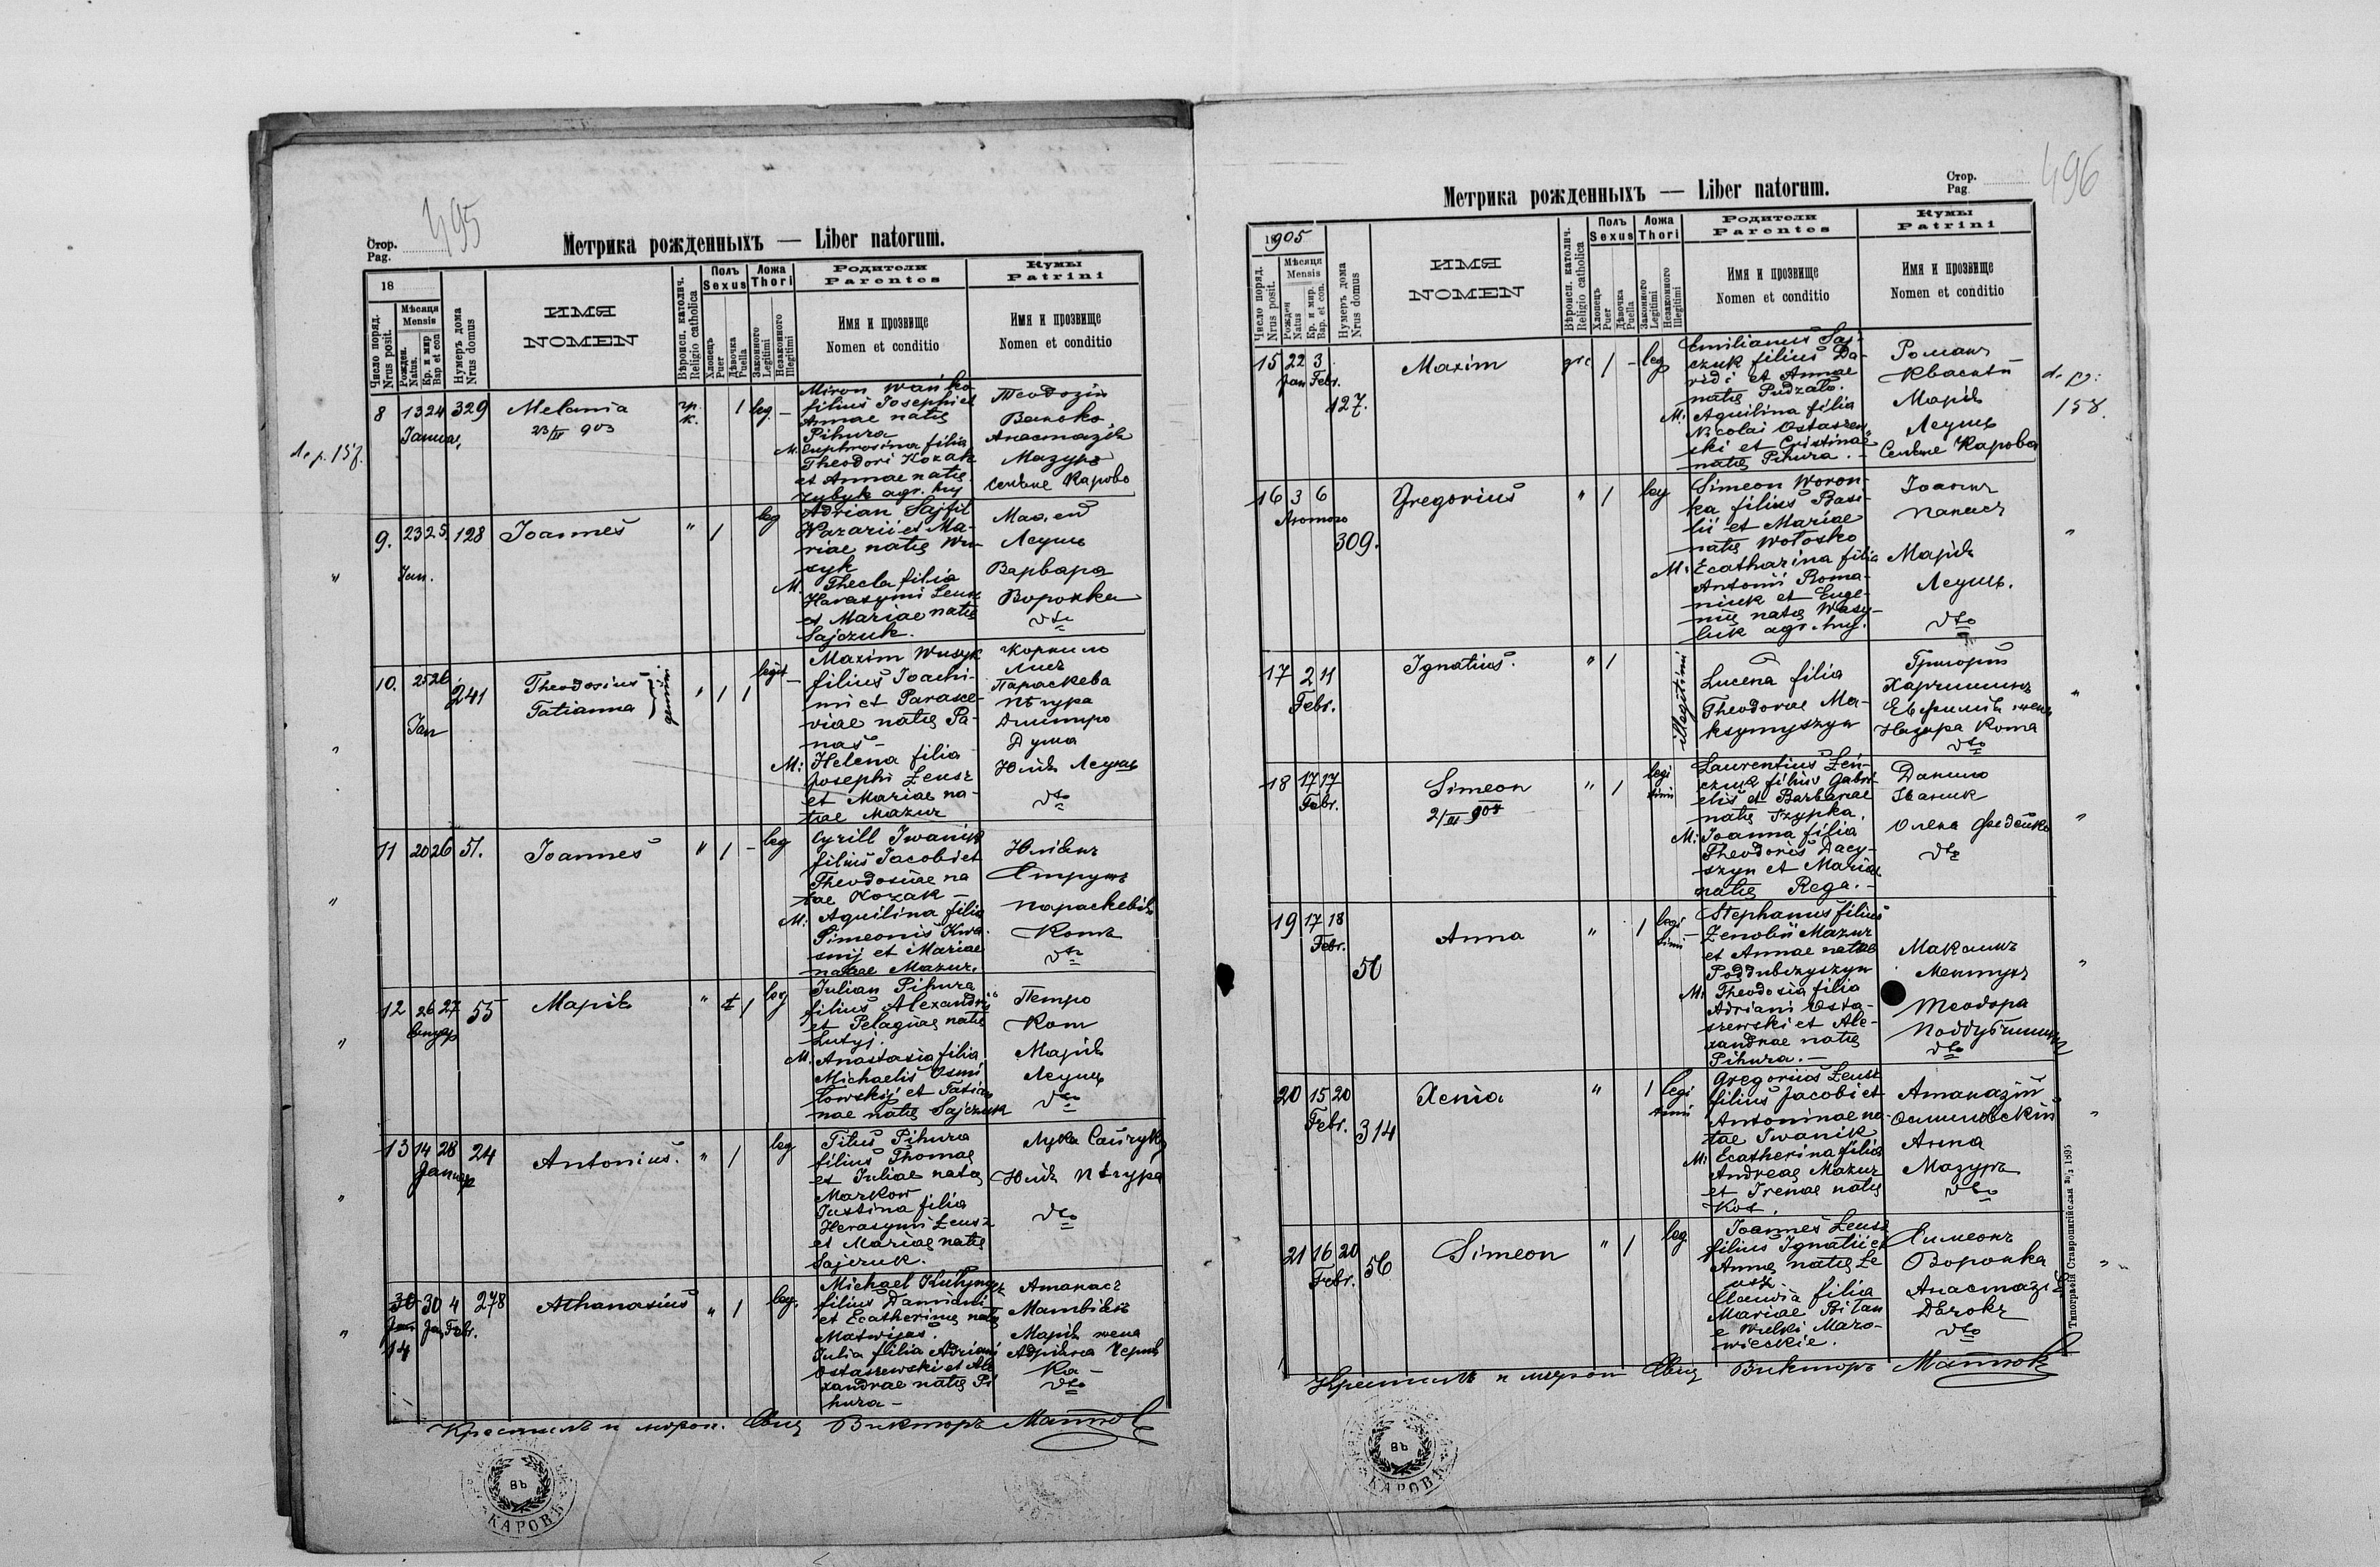 495
Стор.
Pag.
Метрика рожденныхъ — Liber natorum.
18
Число поряд.
Nrus posit.
Мѣсяця
Mensis
Рожден.
Natus.
Кр. и мир
Bap et con
Нумеръ дома
Nrus domus
ИМЯ
NOMEN
Вѣроисп. католич.
Religio catholica
Полъ
Sexus
Хлопець
Puer
Дѣвочка
Puella
Ложа
Thori
Законного
Legitimi
Незаконного
Illegitimi
Родители
Parentes
Имя и прозвище
Nomen et conditio
Кумы
Patrini
Имя и прозвище
Nomen et conditio
8 13 24 329
Melania
23/IV 903
гр.
к.
1 leg —
Miron Wańko
filius Josephi et
Annae natę
Pihura
M. Euphrosina filia
Theodori Kozak
et Annae natę
Zybyk agr. huj
Теодозій
Ванько
Анастазія
Мазуръ
9. 23 25 128
Jan.
Joannes
" 1 leg
Adrian Saj fil
Nazarii et Ma-
riae natę Wu-
syk
M. Thecla filia
Harasymi Leusz
et Mariae natę
Sajczuk.
Леущъ
Варвара
Воронка
dto
10. 25 26 241
Jan
Theodosius
Tatianna
gemini
" 1 1 legit —
Maxim Wusyk
filius Joachi-
mi et Parasce-
viae natę Pa-
nas —
M: Helena filia
Josephi Leusz
et Mariae na-
tae Mazur
Корнило
Лисъ
Параскева
Пѣгура
Дмитро
Дума
Юлія Леущъ
dto
11 20 26 51.
Joannes
" 1 - leg
Cyrill Iwanik
filius Jacobi et
Theodosiae na
tae Kozak —
M: Aquilina filia
Simeonis Kwa-
snij et Mariae
natae Mazur.
Юліянъ
Параскевія
Котъ
dto
12 26 27 55
Марія
" 1 leg
Julian Pihura
filius Alexandrij
et Pelagiae natę
Lutyj.
M: Anastasia filia
Michaelis Osmi
łowskij et Tatian
nae natę Sajczuk
Петро
Кот
Марія
Леущъ
dto
13 14 28 24
Januar
Antonius.
" 1 leg
Titus Pihura
filius Thomae
et Juliae natę
Markow
Justina filia
Herasymi Leusz
et Mariae natę
Sajczuk.
Лука Сайчукъ
Юлія Пѣгура
dto
30 30 4 278
Jan Jan Febr.
14
Athanasius
" 1 leg.
filius Damiani
et Ecatherinę natę
Matwijas.
Julia filia Adriani
Ostaszewski et Ale
xandrae natę Pi
hura —
Атанасъ
Матвіясъ
Марія жена
Адріяна
dto
Крестилъ и миров. Свщ Викторъ Матюк
ВЪ
КАРОВѢ
496
Стор.
Pag
Метрика рожденныхъ — Liber natorum.
1905
Число поряд.
Nrus posit.
Мѣсяця
Mensis
Рожден
Natus
Кр. и мир.
Bap. et con.
Нумеръ дома
Nrus domus
ИМЯ
NOMEN
Вѣроисп. католич.
Religio catholica
Полъ
Sexus
Хлопець
Puer
Дѣвочка
Puella
Ложа
Thori
Законного
Legitimi
Незаконного
Illegitimi
Родители
Parentes
Имя и прозвище
Nomen et conditio
Кумы
Patrini
Имя и прозвище
Nomen et conditio
15 22 3
Jan Febr.
127.
Maxim
grc 1 - leg
Emilianus Saj-
czuk filius Da-
vidi et Annae
natę Pudzało.
M: Aquilina filia
Nicolai Ostaszew
ski et Cristinae
natę Pihura. —
Романъ
Марія
Леущъ
158.
16 3 6
309.
Gregorius
" 1 leg
Simeon Woron-
ka filius Basi-
lii et Mariae
natę Wołosko
M: Ecatharina filia
Antonii Roma-
niuk et Euge-
nię natę Wasy-
luk agr. huj.
Іоаннъ
Панасъ
Марія
Леущъ.
dto
17 2 11
Febr.
Ignatius.
" 1
illegitimi
Lucena filia
Theodorae Ma-
ksymyszyn
Григорій
Харчишинъ
Назара Кота
dto
18 17 17
Febr.
Simeon
" 1 legi
timi
Laurentius Len-
czuk filius Gabri
elis et Barbarae
natę Trypka.
M: Joanna filia
Theodoris Dacy-
szyn et Mariae
natę Rega. —
Данило
Иваник
Олена Федейко
dto
19 17 18
Febr.
50
Anna
" 1 legi
timi
Stephanus filius
Zenobii Mazur
et Annae natae
Poddubczyszyn
M: Theodosia filia
Adriani Osta-
szewski et Ale-
xandrae natę
Pihura. —
Теодора
dto
20 15 20
Febr. 314
Xenia
" 1 legi
timi
Gregorius Leusz
filius Jacobi et
Antoninae na-
tae Iwanik
M: Ecatherina filia
Andreae Mazur
et Irenae natę
Kot.
Атаназій
Осмиловскій
Анна
Мазуръ
dto
21 16 20
Febr. 56
Simeon
" 1 leg.
Joannes Leusz
filius Ignatii et
Annę natę Le
usz
Claudia filia
Mariae Biłan
e Wulki Mazo-
wieckie.
Симеонъ
Воронка
Анастазія
Дячокъ
dto
Крестилъ и миров Свщ Викторъ Матюк
ВЪ
КАРОВѢ